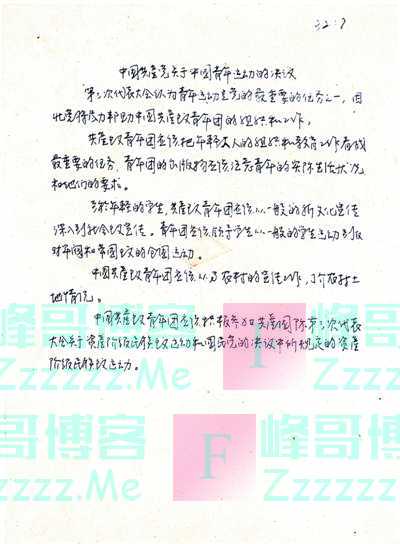 中国共产党关于中国青年运动的决议
第三次代表大会认为青年运动是党的最重要的任务之一，因
此党将尽力帮助中国共产主义青年团的组织和工作。
共产主义青年团应该把年轻工人的组织和教育工作看成
最重要的任务，青年团的出版物应该注意青年的实际生活状况
和他们的要求。
对于年轻的学生，共产主义青年团应该从一般的新文化宣传
深入到社会主义宣传。青年团应该使学生从一般的学生运动到
对军阀和帝国主义的全国运动。
中国共产主义青年团应该从事农村的宣传工作，了解农村土
地情况。
中国共产主义青年团应该积极参加共产国际第三次代表
大会关于资产阶级民族主义运动和国民党的决议中所规定的资产
阶级民族主义运动。
峰哥博客
Zzzzzz.Me
F
峰哥博客
Zzzzzz.Me
F